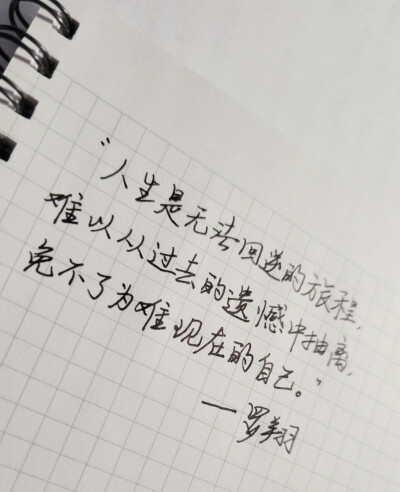 "人生是无法回逆的旅程,
难以从过去的遗憾中抽离,
免不了为难现在的自己。"
—罗翔